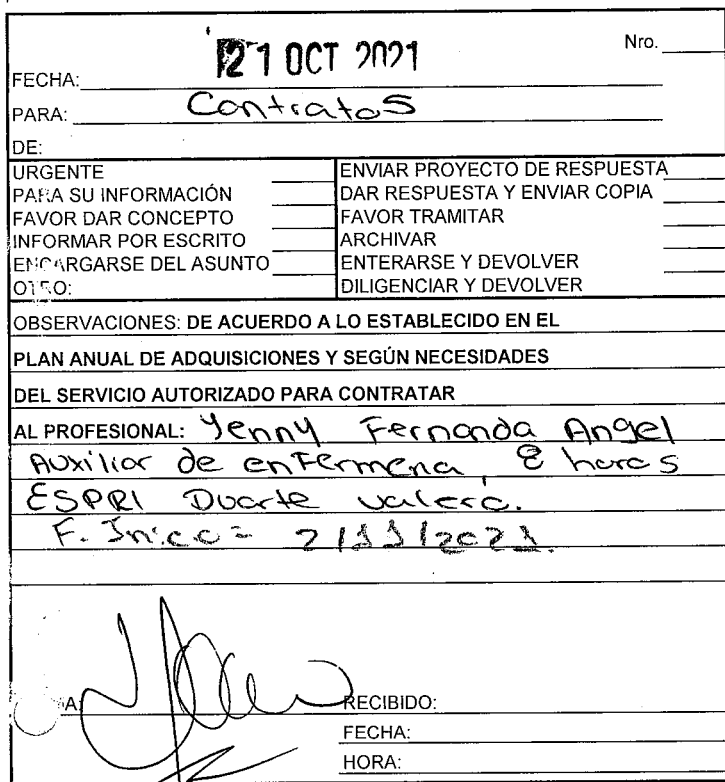 Nro.
FECHA: 21 OCT 2021
PARA: Contratos
DE:
URGENTE
PARA SU INFORMACIÓN
FAVOR DAR CONCEPTO
INFORMAR POR ESCRITO
ENCARGARSE DEL ASUNTO
OTRO:
ENVIAR PROYECTO DE RESPUESTA
DAR RESPUESTA Y ENVIAR COPIA
FAVOR TRAMITAR
ARCHIVAR
ENTERARSE Y DEVOLVER
DILIGENCIAR Y DEVOLVER
OBSERVACIONES: DE ACUERDO A LO ESTABLECIDO EN EL
PLAN ANUAL DE ADQUISICIONES Y SEGÚN NECESIDADES
DEL SERVICIO AUTORIZADO PARA CONTRATAR
AL PROFESIONAL: Yenny Fernanda Angel
Auxiliar de enfermeria, 8 horas
ESPRI Duarte Valero.
F. Inicio = 2/11/2021.
RECIBIDO:
FECHA:
HORA: